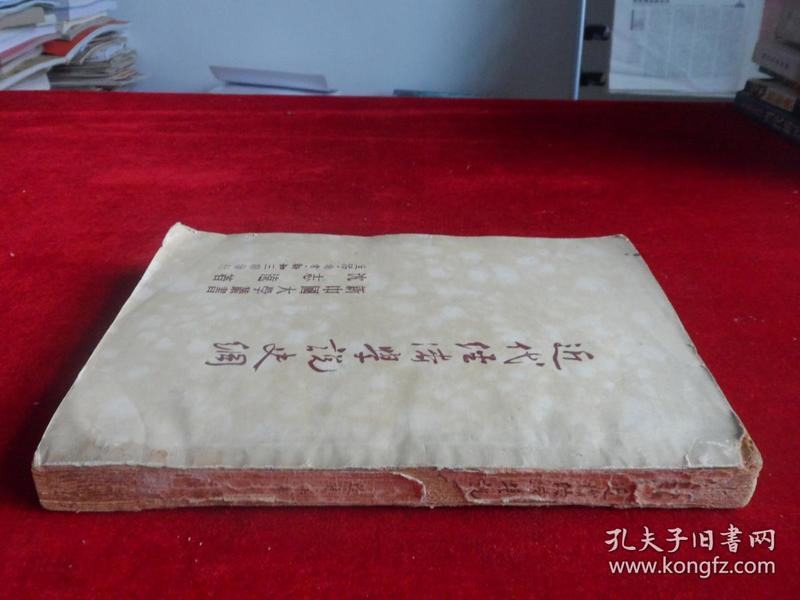 近代經濟學說史綱
新中國大學叢書
沈志遠著
生活·讀書·新知三聯發行
孔夫子旧書网
www.kongfz.com